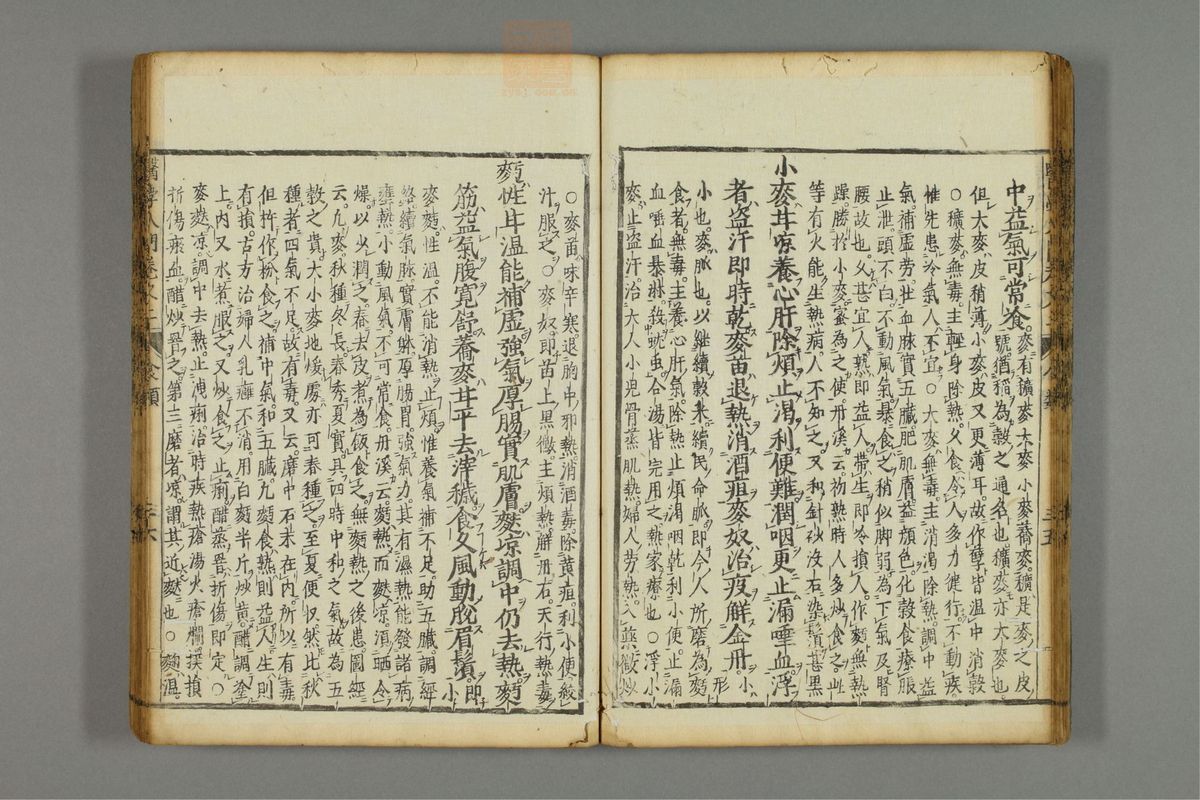 中益氣可常食麥有擴麥大麥小麥蕎麥穬是麥之皮
號猶稻為穀之通名也穬麥亦大麥也
但大麥皮稍薄小麥皮又更薄耳故作孽皆温中消穀
○穬麥無毒主輕身除熱久食令人多力健行不動疾
惟先患冷氣人不宜○大麥無毒主消渴除熱調中益
氣補虛勞壮血脉實五臟肥肌膚益顔色化穀食療脹
止泄頭不白不動風氣暴食之稍似脚弱為下氣及腎
腰故也久甚宜人熟即益人帶生即冷損人作麪無熱
躁勝於小麥蜜為之使丹溪云初熟時人多炒食之此
等有火能生熱病人不知之又和針砂没石染鬚甚黒
小麥甘凉養心肝除煩止渴利便難潤咽更止漏唾血浮
者盗汗即時乾麥苗退熱消酒疸麥奴治疫解金丹小
形
小也麥脉也以継續穀米續民命脉即今人所磨為麪
食者無毒主養心肝氣除熱止煩渴咽乾利小便止漏
血唾血暴淋殺蚘虫合湯皆完用之熱家療也○浮小
麥止盗汗治大人小児骨蒸肌熱婦人劳熱入藥微炒
○麥苗味辛寒退胸中邪熱消酒毒除黄疸利小便絞
汁服之○麥奴即苗上黒黴主煩熱解丹石天行熱毒
麪性甘温能補虛強氣厚腸實肌膚麩凉調中仍去熱麥
筋益氣腹寛舒蕎麥甘平去滓穢食久風動脱眉鬚即
小
麥麪性温不能消熱止煩惟養氣補不足助五臟調經
絡續氣脉實膚躰厚腸胃強氣力其有濕熱能發諸病
壅熱小動風氣不可常食丹溪云麪熱而麩凉須晒令
燥以少潤之舂去皮煮為飯食之無麪熱之後患圖經
云九麥秋種冬長春秀夏實具四時中和之氣故為五
穀之貴大小麥地煖處亦可春種之至夏便収然此秋
種者四氣不足故有毒又云磨中石末在内所以有毒
但杵作粉食之補中氣和五臟九麪食熟則益人生則
有損古方治婦人乳癰不消用白麪半斤炒黄醋調塗
上内又水煮服之又炒食之止痢醋蒸罨折傷即定○
麥麩凉調中去熱止洩痢治時疾熱瘡湯火瘡爛撲損
折傷瘀血醋炒罨之第三磨者凉謂其近麩也○麵温